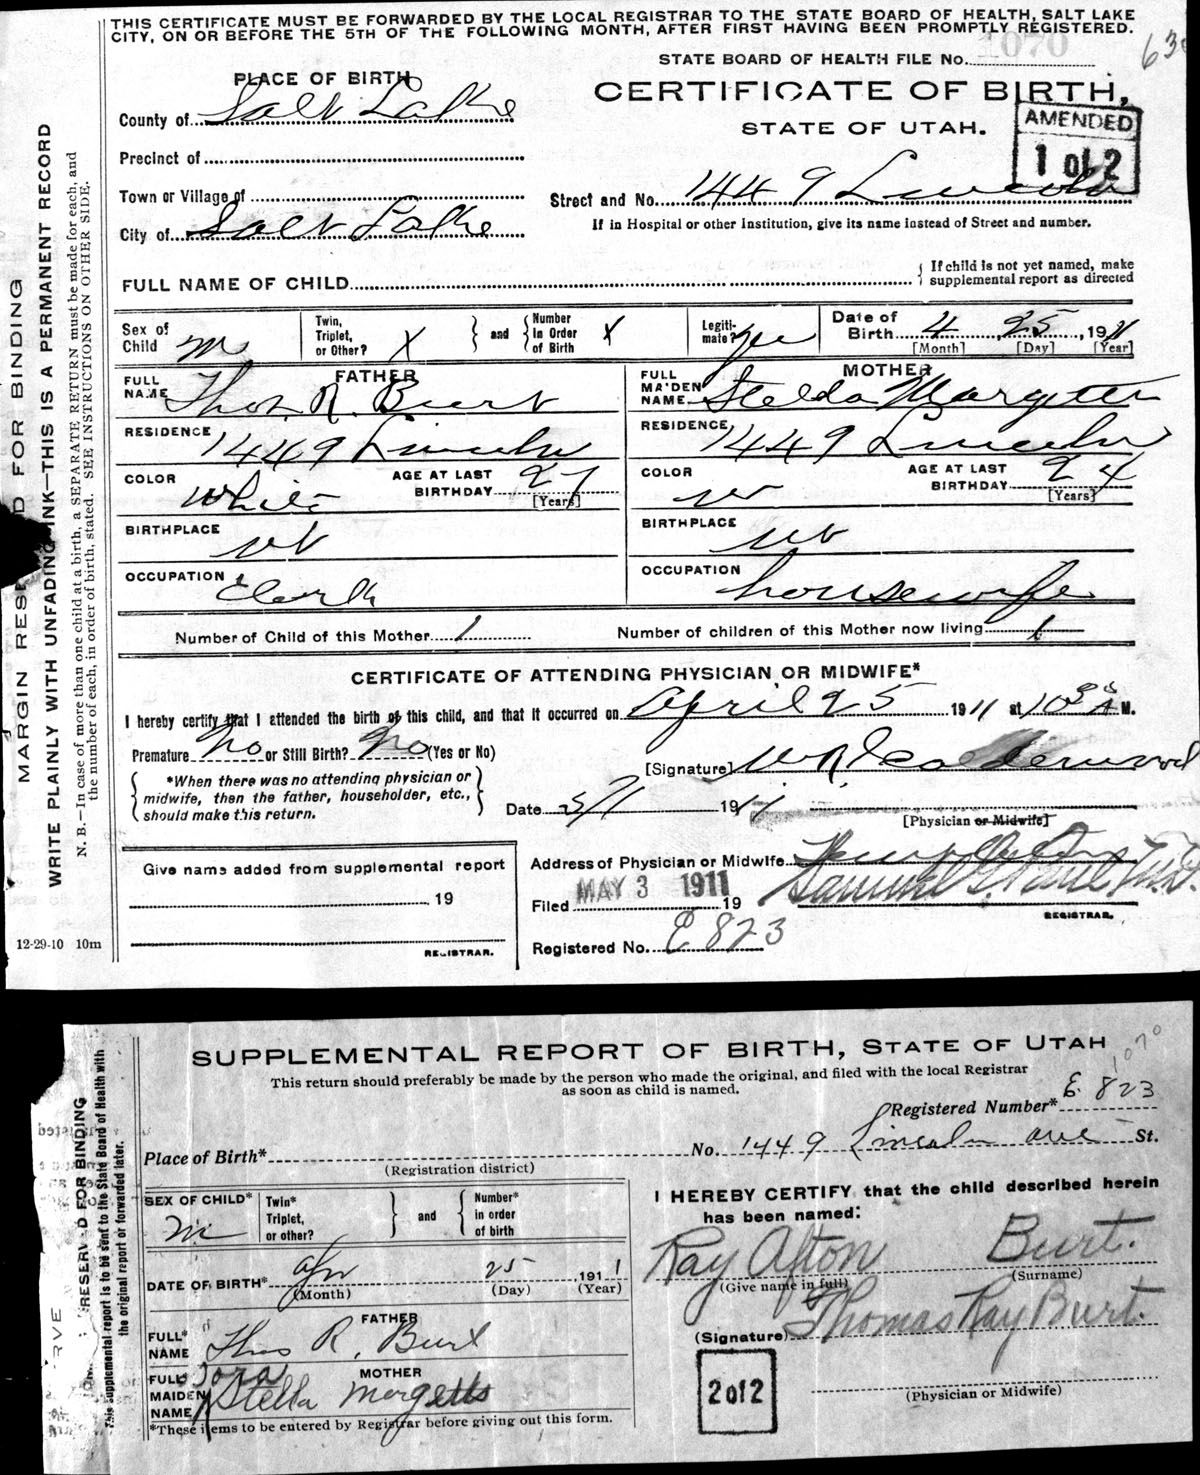 THIS CERTIFICATE MUST BE FORWARDED BY THE LOCAL REGISTRAR TO THE STATE BOARD OF HEALTH, SALT LAKE
CITY, ON OR BEFORE THE 5TH OF THE FOLLOWING MONTH, AFTER FIRST HAVING BEEN PROMPTLY REGISTERED.
STATE BOARD OF HEALTH FILE No. 1070
63
PLACE OF BIRTH
CERTIFICATE OF BIRTH,
STATE OF UTAH.
AMENDED
1 of 2
County of Salt Lake
Precinct of
Town or Village of
Street and No. 1449 Lincoln
City of Salt Lake
If in Hospital or other Institution, give its name instead of Street and number.
FULL NAME OF CHILD
{ If child is not yet named, make
supplemental report as directed
Sex of Child M
Twin, Triplet, or Other? X } and { Number In Order of Birth X
Legitimate? yes
Date of Birth 4 25, 1911
[Month] [Day] [Year]
FATHER
FULL NAME Thos. R. Burt
MOTHER
FULL MAIDEN NAME Stella Margetts
RESIDENCE 1449 Lincoln
RESIDENCE 1449 Lincoln
COLOR White
AGE AT LAST BIRTHDAY 27 [Years]
COLOR W
AGE AT LAST BIRTHDAY 24 [Years]
BIRTHPLACE Ut
BIRTHPLACE Ut
OCCUPATION Clerk
OCCUPATION housewife
Number of Child of this Mother 1
Number of children of this Mother now living 1
CERTIFICATE OF ATTENDING PHYSICIAN OR MIDWIFE*
I hereby certify that I attended the birth of this child, and that it occurred on April 25 1911 at 10 A M.
Premature No or Still Birth? No (Yes or No)
[Signature] W R Calderwood
{ *When there was no attending physician or
midwife, then the father, householder, etc.,
should make this return. }
Date 5/1 1911
[Physician or Midwife]
Give name added from supplemental report
19
REGISTRAR.
Address of Physician or Midwife
Filed MAY 3 1911 19
Samuel G. Paul M.D.
REGISTRAR.
Registered No. E 823
12-29-10 10m
MARGIN RESE D FOR BINDING
WRITE PLAINLY WITH UNFADING INK—THIS IS A PERMANENT RECORD
N. B.—In case of more than one child at a birth, a SEPARATE RETURN must be made for each, and
the number of each, in order of birth, stated. SEE INSTRUCTIONS ON OTHER SIDE.
SUPPLEMENTAL REPORT OF BIRTH, STATE OF UTAH
1070
This return should preferably be made by the person who made the original, and filed with the local Registrar
as soon as child is named.
Registered Number* E 823
Place of Birth* No. 1449 Lincoln ave St.
(Registration district)
SEX OF CHILD* M
Twin* Triplet, or other? } and { Number* in order of birth
I HEREBY CERTIFY that the child described herein
has been named:
Ray Afton Burt.
(Give name in full) (Surname)
DATE OF BIRTH* Apr 25, 1911
(Month) (Day) (Year)
FATHER
FULL* NAME Thos R. Burt
(Signature) Thomas Ray Burt.
MOTHER
FULL MAIDEN NAME Zora Stella Margetts
2 of 2
(Physician or Midwife)
*These items to be entered by Registrar before giving out this form.
RESERV D FOR BINDING
This supplemental report is to be sent to the State Board of Health with
the original report or forwarded later.
RVE